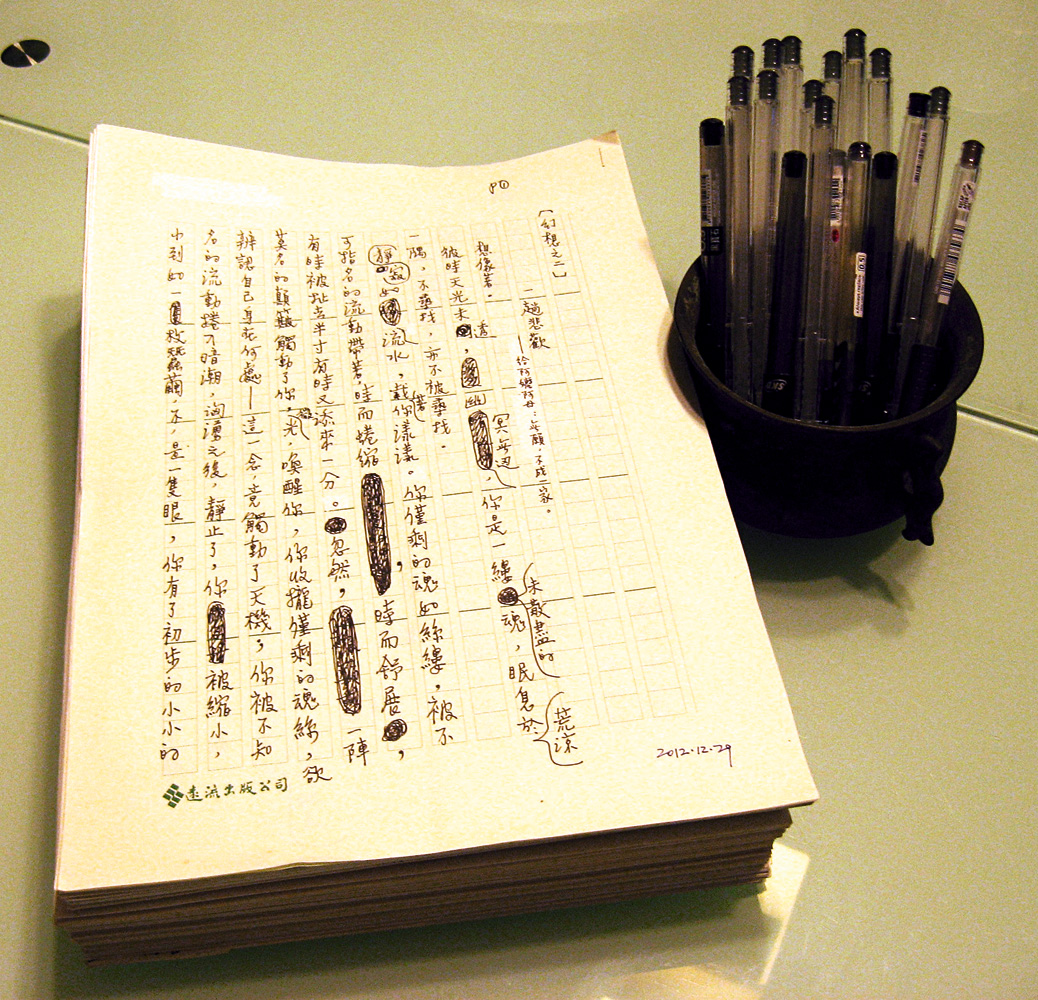 P①
【幻想之二】
一趟悲歡
想像著。
彼時天光未透，幽冥無邊，你是一縷未散盡的魂，眠息於荒涼
一隅，不尋找，亦不被尋找。
靜寂如流水，載著你漾漾。你僅剩的魂如絲縷，被不
可指名的流動帶著，時而蜷縮，時而舒展，
有時被扯去半寸有時又添來一分。忽然，一陣
莫名的顛簸觸動了你，光，喚醒你，你收攏僅剩的魂絲，欲
辨認自己身在何處——這一念，竟觸動了天機，你被不知
名的流動捲入暗潮，洶湧之後，靜止了，你被縮小，
小到如一枚蠶繭，不，是一隻眼，你有了初步的小小的
遠流出版公司
2012.12.29